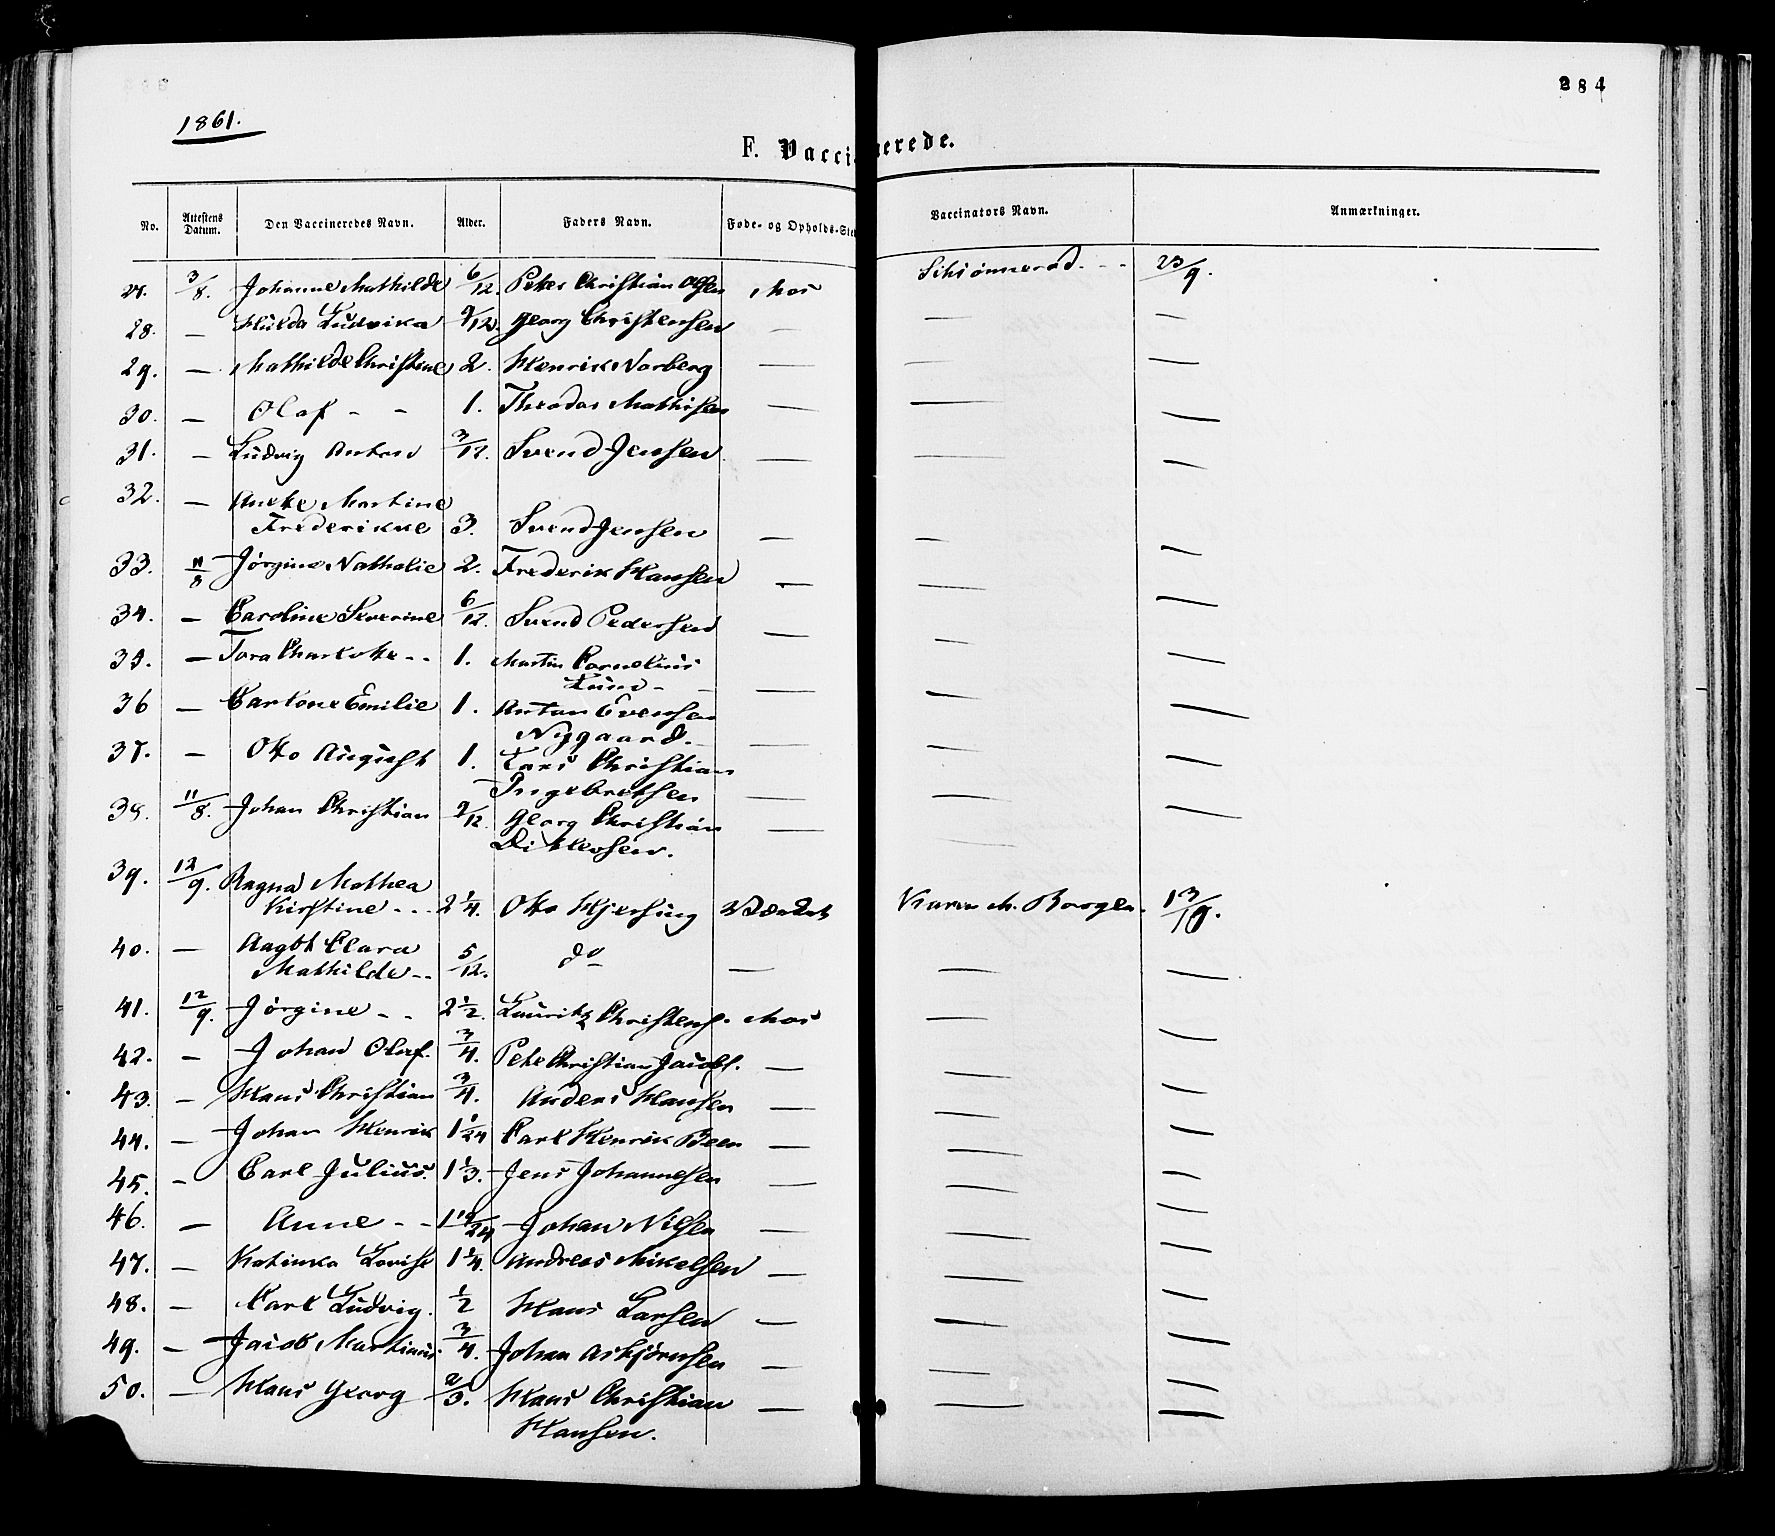 284
1861.
F. Vaccinerede.
No. Attestens Datum. Den Vaccineredes Navn. Alder. Faders Navn. Føde- og Opholds-Ste Vaccinators Navn. Anmærkninger.
27. 3/8. Johanne Mathilde 6/12. Peter Christian Olsen Mos - - 23/9.
28. — Hulda Ludvika 9/12. Georg Christensen — — —
29. — Mathilde Christine 2. Henrik Norberg — — —
30. — Olaf - - 1. Theodor Mathisen — — —
31. — Ludvig Anton 3/12. Svend Jensen — — —
32. — Anette Martine
Frederikke 3. Svend Jensen — — —
33. 11/8 Jørgine Nathalie 2. Frederik Hansen — — —
34. — Caroline Severine 6/12. Svend Pedersen — — —
35. — Tora Charlotte - - 1. Martin Cornelius
Lund - - — — —
36 — Emilie 1. Anton Evensen
Nygaard. — — —
37. — Otto August 1. Lars Christian
Ingebretsen — — —
38. 11/8. Johan Christian 9/12. Georg Christian
Ditlevsen. — — —
39. 12/9. Ragna Mathea
Kirstine - - - 2 1/4. Otto Hjersing Karen M. Borgen. 13/10.
40. — Aagot Clara
Mathilde - - 5/12. do — — —
41. 12/9. Jørgine - - 2 1/2. Lauritz Christens. Mos — —
42. — Johan Olaf. 3/4. Pete Christian Jacobs. — — —
43. — Hans Christian 3/4. Anders Hansen — — —
44. — Johan Henrik 1 1/24 Carl Henrik Been — — —
45. — Carl Julius. 1 1/3. Jens Johannesen — — —
46. — Anne - - Johan Nilsen — — —
47. — Katinka Lovise 1 1/4. Andreas Mikelsen — — —
48. — Carl Ludvig. 1/2 Hans Larsen — — —
49. — Jacob Martinius. 3/4. Johan Asbjørnsen — — —
50. — Hans Georg 2/3. Hans Christian
Hansen. — — —